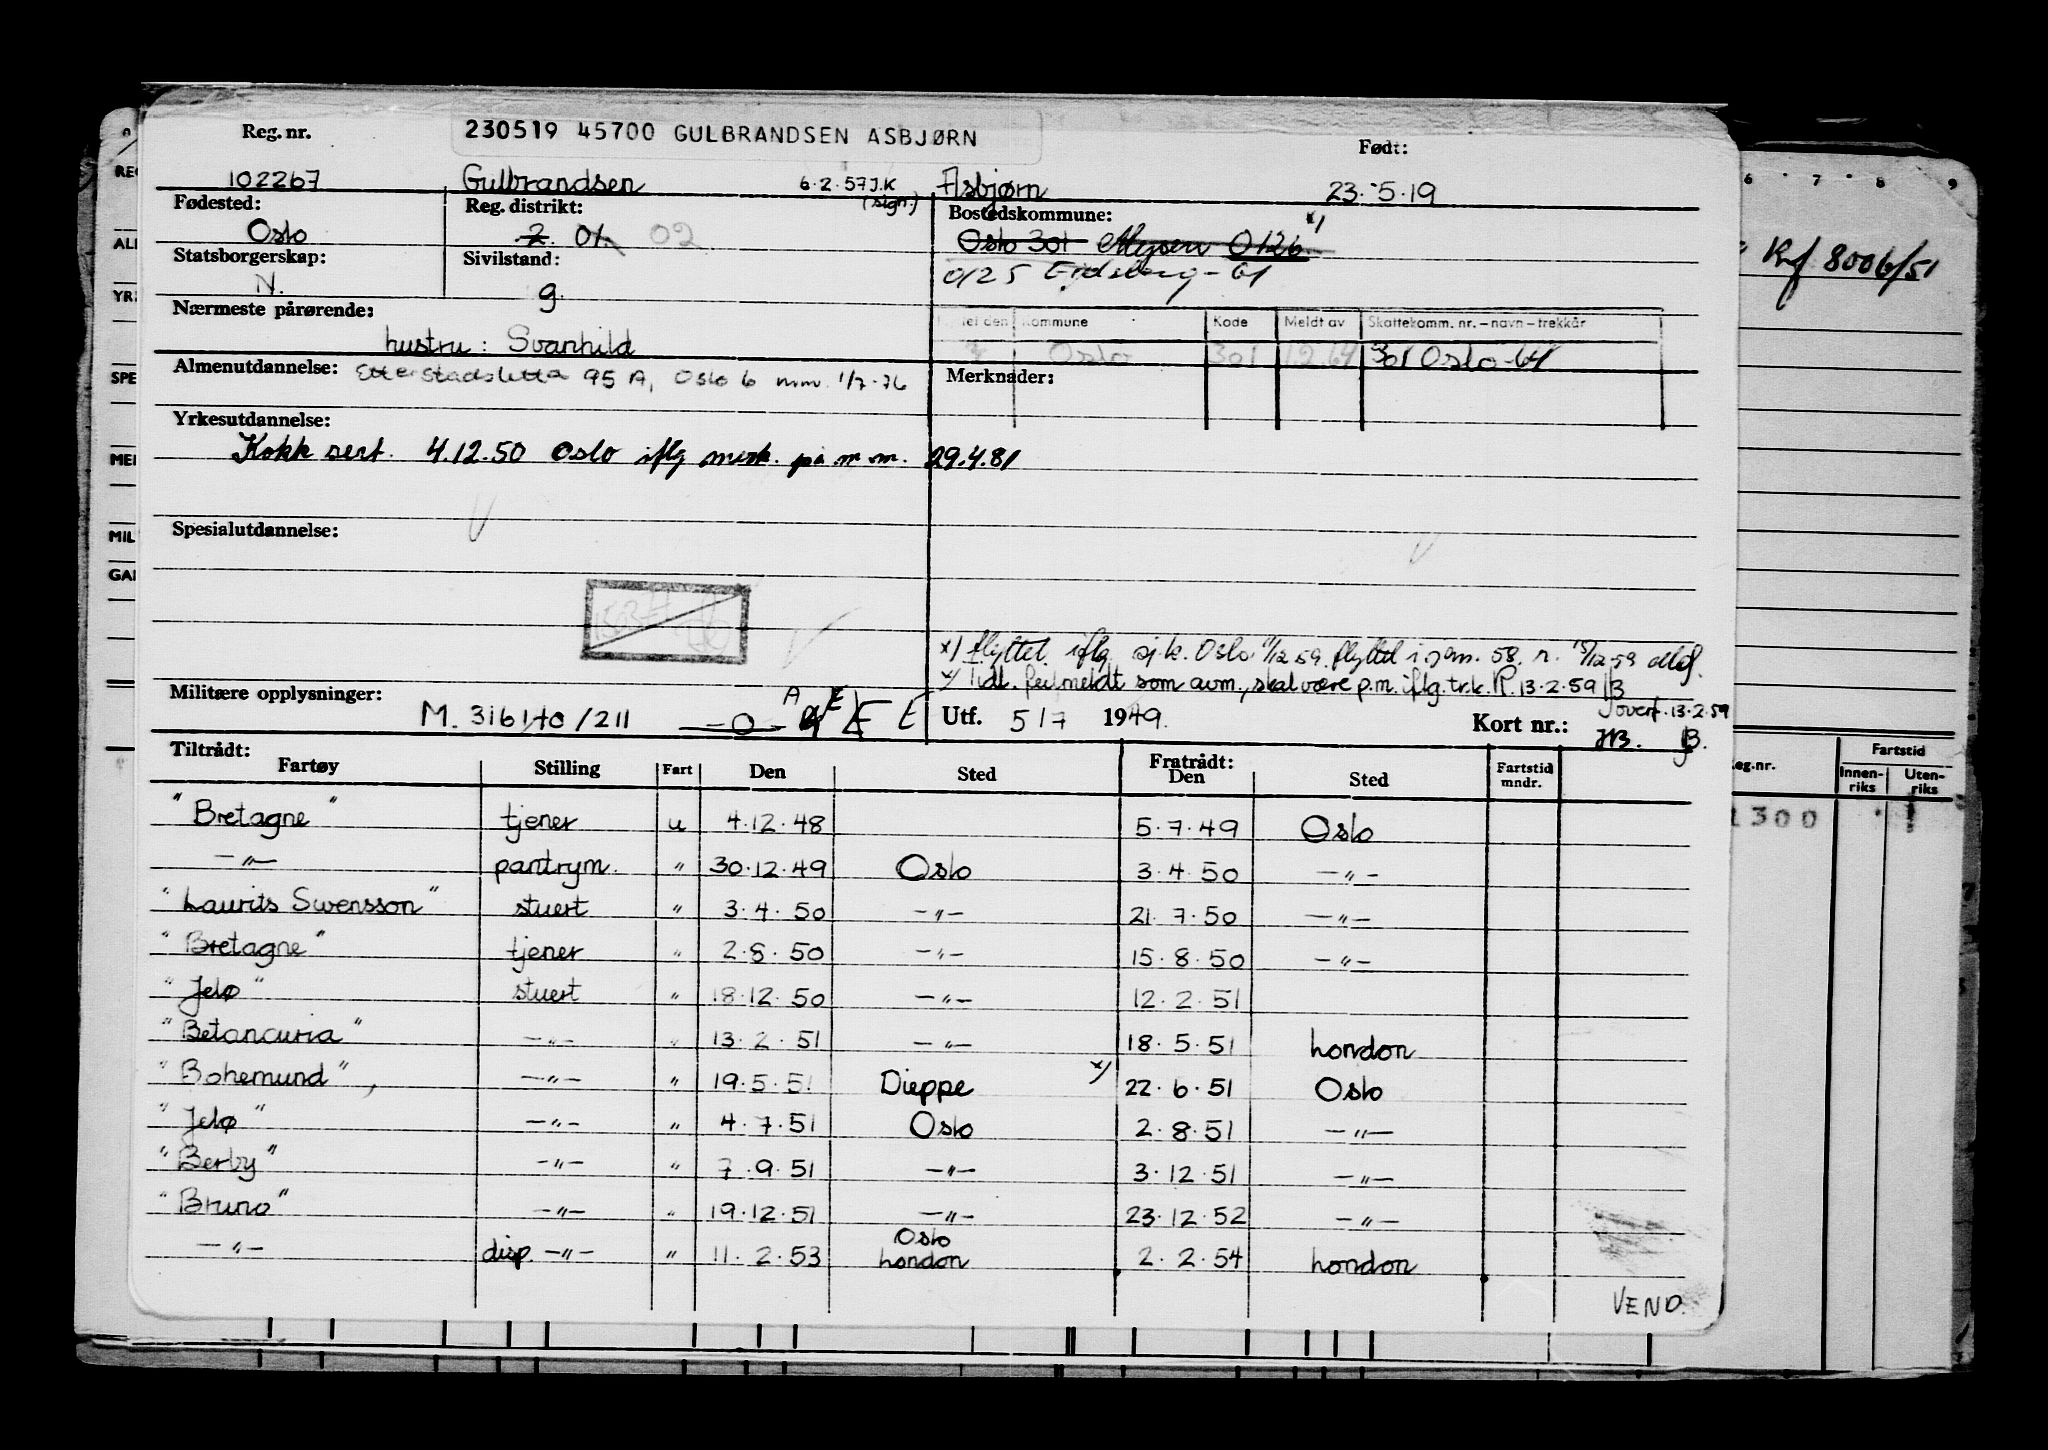 Reg. nr. 230519 45700 GULBRANDSEN ASBJØRN Født:
102267 Gulbrandsen 6.2.57 J.K (sign.) Asbjørn 23.5.19
Fødested: Reg. distrikt: Bostedskommune: x)
Oslo 2. 01. 02 Oslo 301 Mysen 0126
Statsborgerskap: Sivilstand: 0125 Eidsberg - 61
N. g.
Nærmeste pårørende: Kommune Kode Meldt av Skattekomm. nr. – navn – trekkår
hustru: Svanhild Oslo 301 12.64 301 Oslo-64
Almenutdannelse: Etterstadsletta 95 A, Oslo 6 mm. 1/7-76 Merknader:
Yrkesutdannelse:
Kokk sert. 4.12.50 Oslo iflg merk. på m.m. 29.4.81
Spesialutdannelse:
x) flyttet iflg sj.k. Oslo 11/12 59. flyttet i jan. 58. r. 15/12-59
x) Tidl. feilmeldt som avm., skal være p.m. iflg. tr.k. R. 13.2.59 JB
Militære opplysninger: M. 3161/40/211 —0— A E E E Utf. 5/7 1949. Kort nr.: overf. 13.2.59
JB. B.
Tiltrådt: Fratrådt:
Fartøy Stilling Fart Den Sted Den Sted Fartstid mndr.
"Bretagne" tjener u 4.12.48 5.7.49 Oslo
—"— pantrym. " 30.12.49 Oslo 3.4.50 —"—
"Laurits Swensson" stuert " 3.4.50 —"— 21.7.50 —"—
"Bretagne" tjener " 2.8.50 —"— 15.8.50 —"—
"Jelø" stuert " 18.12.50 —"— 12.2.51
"Betancuria" —"— " 13.2.51 —"— 18.5.51 London
"Bohemund", —"— " 19.5.51 Dieppe x) 22.6.51 Oslo
"Jelø" —"— " 4.7.51 Oslo 2.8.51 —"—
"Berby" —"— " 7.9.51 —"— 3.12.51 —"—
"Bruno" —"— " 19.12.51 —"— 23.12.52 —"—
—"— disp. —"— " 11.2.53 Oslo London 2.2.54 London
VEND.
REG
AL
YR
SPE
MEI
MIL
GAI
6 7 8 9
Knf 8006/51
eg.nr. Fartstid
Innen-riks Uten-riks
1300